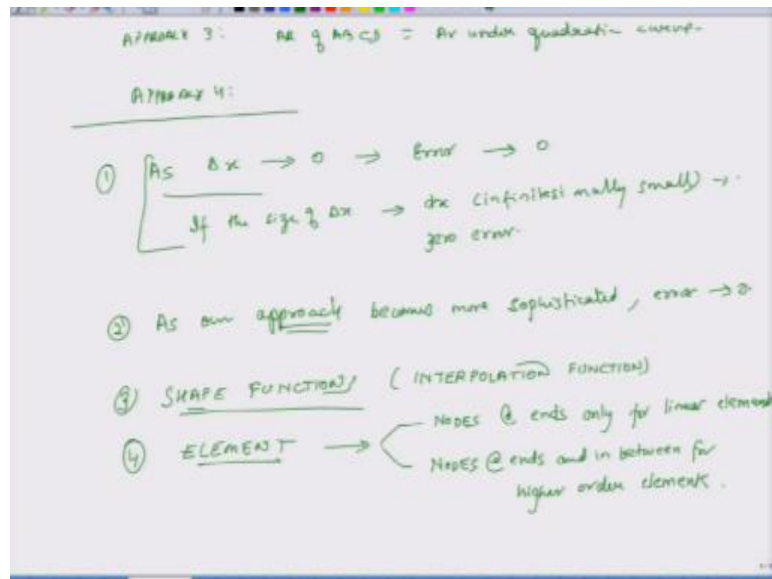 APPROACH 3: AR of ABCD = Ar under quadratic curve.
APPROACH 4:
① As Δx → 0 → Error → 0
If the size of Δx → dx (infinitesimally small) →
zero error.
② As our approach becomes more sophisticated, error → 0
③ SHAPE FUNCTIONS (INTERPOLATION FUNCTION)
④ ELEMENT → NODES @ ends only for linear element
NODES @ ends and in between for
higher order elements.